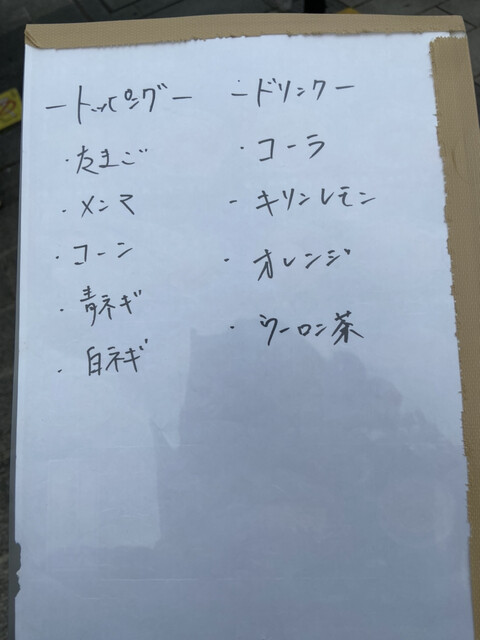 ートッピングー
・たまご
・メンマ
・コーン
・青ネギ
・白ネギ
ードリンクー
・コーラ
・キリンレモン
・オレンジ
・ウーロン茶